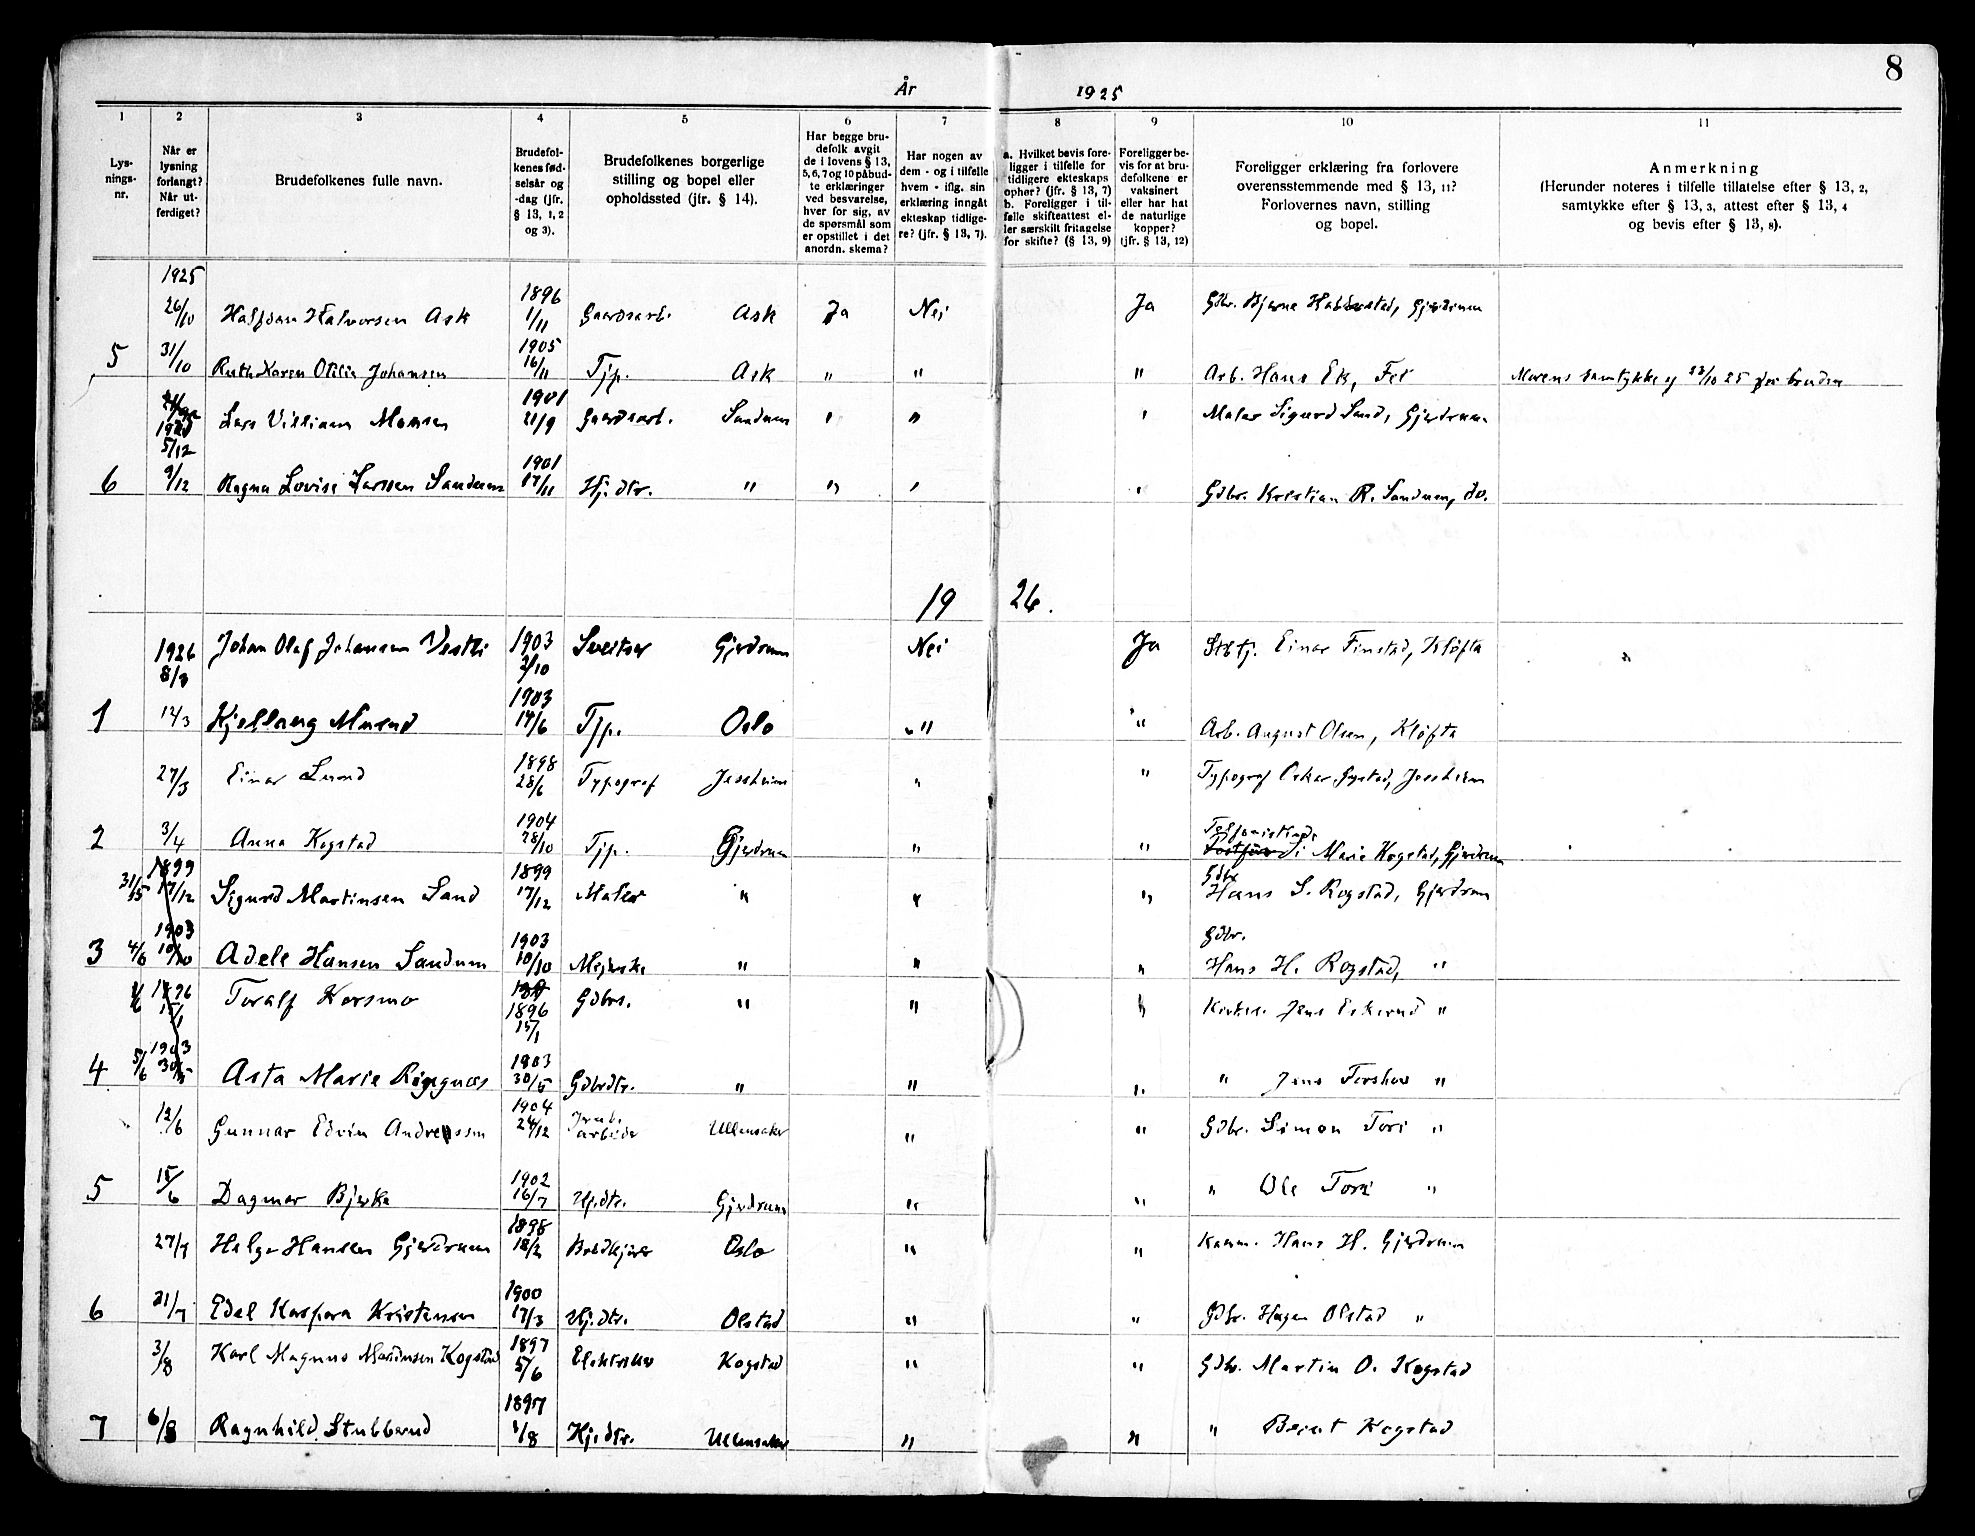 8
År 1925
1 2 3 4 5 6 7 8 9 10 11
Lys-
nings-
nr.
Når er
lysning
forlangt?
Når ut-
ferdiget?
Brudefolkenes fulle navn.
Brudefol-
kenes fød-
selsår og
-dag (jfr.
§ 13, 1, 2
og 3).
Brudefolkenes borgerlige
stilling og bopel eller
opholdssted (jfr. § 14).
Har begge bru-
defolk avgit
de i lovens § 13,
5, 6, 7 og 10 påbud-
te erklæringer
ved besvarelse,
hver for sig, av
de spørsmål som
er opstillet i det
anordn. skema?
Har nogen av
dem - og i tilfelle
hvem - iflg. sin
erklæring inngåt
ekteskap tidlige-
re? (jfr. § 13, 7).
a. Hvilket bevis fore-
ligger i tilfelle for
tidligere ekteskaps
ophør? (jfr. § 13, 7)
b. Foreligger i til-
felle skifteattest el-
ler særskilt fritagelse
for skifte? (§ 13, 9)
Foreligger be-
vis for at bru-
defolkene er
vaksinert
eller har hat
de naturlige
kopper?
(jfr. § 13, 12)
Foreligger erklæring fra forlovere
overensstemmende med § 13, 11?
Forlovernes navn, stilling
og bopel.
Anmerkning
(Herunder noteres i tilfelle tillatelse efter § 13, 2,
samtykke efter § 13, 3, attest efter § 13, 4
og bevis efter § 13, 8).
1925
26/10 Halfdan Halvorsen Ask 1896 1/11 Gaardsarb. Ask Ja Nei Ja Gbr. Bjarne Gjerdrum
5 31/10 Ruth Karen Otilie Johansen 1905 16/11 Tjp. Ask " " " Arb. Hans Ek, Fet Morens samtykke af 23/10 25 for bruden
1925 5/12 Lars Villiam Monsen 1901 21/9 Gaardsarb. Sandum " " " Maler Sigurd Sand, Gjerdrum
6 9/12 Ragna Lovise Larsen Sandum 1901 17/11 Hj.dtr. " " " " Gdbr. Kristian R. Sandum, do.
19 26.
1926 8/3 Johan Olaf Johansen Vestli 1903 2/10 Sveitser Gjerdrum Nei Ja Stbtj. Einar Finstad, Kløfta
1 12/3 Kjellaug 1903 14/6 Tjp. Oslo " " Arb. August Olsen, Kløfta
27/3 Einar Lund 1898 28/6 Typograf Jessheim " " Typograf Oskar Jessheim
2 3/4 Anna Kogstad 1904 28/10 Tjp. Gjerdrum " " Telefonistinde Marie Kogstad, Gjerdrum
31/5 1899 17/12 Sigurd Martinsen Sand 1899 17/12 Maler " " " Gdbr. Hans S. Rogstad, Gjerdrum
3 4/6 1903 10/10 Adele Hansen Sandum 1903 10/10 Mejerske " " " Gdbr. Hans H. Rogstad, "
1/6 1896 15/1 Toralf Korsmo 1896 15/1 Gdbr. " " " Kirkes. Jens Eskerud "
4 5/6 1903 30/5 Asta Marie Ringnæs 1903 30/5 Gdbrdtr. " " " " Jens "
12/6 Gunnar Edvin Andreassen 1904 24/12 Jernb. arbeider Ullensaker " " Gdbr. Simon Tori "
5 15/6 Dagmar Bjerke 1902 16/7 Hj.dtr. Gjerdrum " " " Ole Tori "
27/7 Helge Hansen Gjerdrum 1898 18/2 Oslo " " Hans H. Gjerdrum
6 31/7 Edel Kaspara Kristensen 1900 17/3 Hj.dtr. Olstad " " Gdbr. Hagen Olstad "
3/8 Karl Magnus Martinsen Kogstad 1897 5/6 Elektriker Kogstad " " Gdbr. Martin O. Kogstad
7 6/8 Ragnhild Stubberud 1897 1/8 Hj.dtr. Ullensaker " " " Kogstad